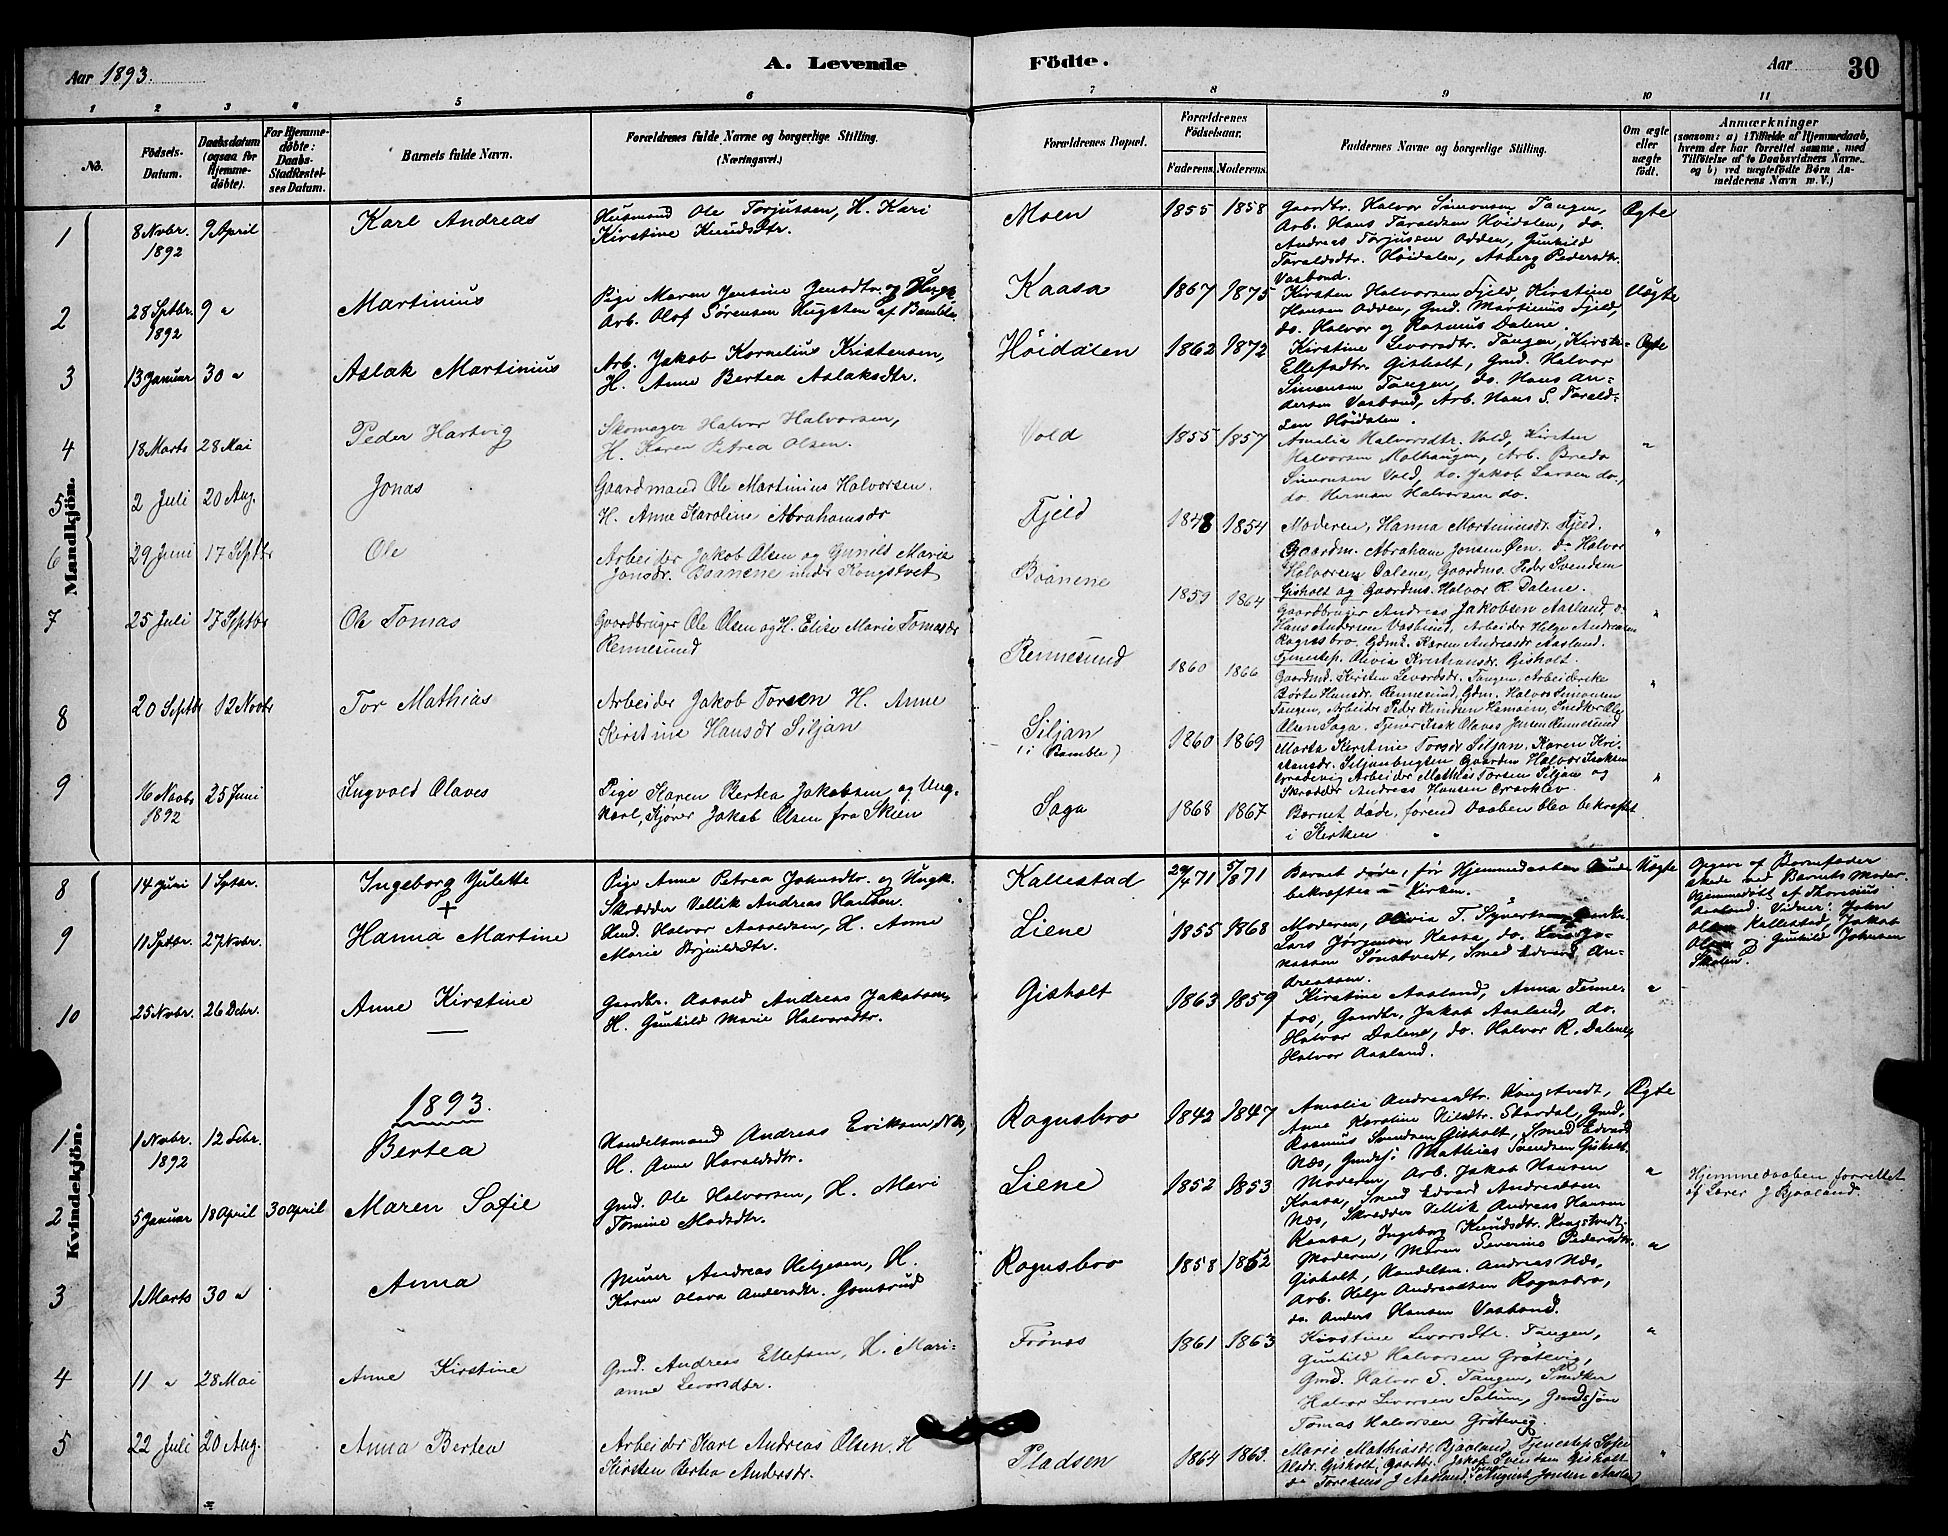 Aar 1893. A. Levende Födte. Aar 30
1 2 3 4 5 6 7 8 9 10 11
No. Födsels-Datum. Daabsdatum (ogsaa for Hjemme-döbte). For Hjemme-döbte: Daabs-Stadfæstel-ses Datum. Barnets fulde Navn. Forældrenes fulde Navne og borgerlige Stilling. (Næringsvei.) Forældrenes Bopæl. Forældrenes Födselsaar. Faderens. Moderens. Faddernes Navne og borgerlige Stilling. Om ægte eller uægte födt. Anmærkninger (saasom: a) i Tilfælde af Hjemmedaab, hvem der har forrettet samme, med Tilföielse af to Daabsvidners Navne, og b) ved uægtefödte Börn An-melderens Navn m. V.)
Mandkjön.
1 8 Nvbr. 1892 9 April Karl Andreas Husmand Ole Torjussen, H. Kari
Kirstine Knudsdtr. Moen 1855 1858 Gaardbr. Halvor Simonsen Tangen, Ægte
Arb. Hans Taraldsen Höidalen, do.
Andreas Torjussen Odden, Gunhild
Taraldsdtr. Höidalen, Asberg Pedersdtr.
Vasbond.
2 28 Sptbr. 1892 9 " Martinius Pige Maren Jensine Jensdtr. og Ungk.
Arb. Olof Sörensen Hugsten af Bamble. Kaasa 1867 1875 Kirsten Halvorsen Fjeld, Kirstine Uægte
Hansen Odden, Gmd. Martinius Fjeld,
do. Halvor og Rasmus Dalene.
3 13 Januar 30 " Aslak Martinius Arb. Jakob Kornelius Kristensen,
H. Anne Bertea Aslaksdtr. Höidalen 1862 1872 Kirstine Levorsdtr. Tangen, Kirst. Ægte
Ellefsdtr. Gisholt, Gmd. Halvor
Simonsen Tangen, do. Hans An-
dersen Vasbond, Arb. Hans S. Tarald-
sen Höidalen.
4 18 Marts 28 Mai Peder Hartvig Skomager Halvor Halvorsen,
H. Karen Petrea Olsen. Vold 1855 1857 Amalia Halvorsdtr. Vold, Kirsten "
Halvorsen Molhaugen, Arb. Brede
Simonsen Vold, do. Jakob Larsen do.,
do. Herman Halvorsen do.
5 2 Juli 20 Aug. Jonas Gaardmand Ole Martinius Halvorsen.
H. Anne Karoline Abrahamsdr Fjeld 1848 1854 Moderen, Hanna Martinusdr. Fjeld. "
Gaardm. Abraham Jonsen Öen. do Halvor
Halvorsen Dalene, Gaardms. Peder Svendsen
Gisholt og Gaardms. Halvor R. Dalene.
6 29 Juni 17 Septbr Ole Arbeider Jakob Olsen og Gunild Marie
Jonsdr. Braanene under Kongstvet Braanene 1859 1864 Gaardbruger Andreas Jakobsen Aasland, do "
Hans Andersen Vasbund, Arbeider Helge Andreasen
Ragnsbro, Gdmd. Karen Andreasdr Aasland.
Tjenestep. Olivia Kristiansdr. Gisholt.
7 25 Juli 17 Septbr Ole Tomas Gaardbruger Ole Olsen og H. Elise Marie Tomasdr
Rennesund Rennesund 1860 1866 Gaardmd. Kirsten Levordsdr. Tangen, Arbeiderske "
Börte Hansdr. Rennesund, Gdm. Halvor Simonsen
Tangen, Arbeider Peder Knudsen Hamoin, Snedker Ole
Olsen Saga, Tjener Isak Olaves Jansen Rennesund
8 20 Septbr 12 Novbr Tor Mathias Arbeider Jakob Torsen H. Anne
Kirstine Hansdr Siljan Siljan (i Bamble) 1860 1869 Marta Kirstine Torsdr Siljan, Karen Kri- "
stansdr. Siljanbugten Gaardm Halvor Isaksen
Grødevig Arbeider Mathias Torsen Siljan og
Skrædder Andreas Hansen Gravklev.
9 16 Novbr 1892 25 Juni Ingvald Olaves Pige Karen Bertea Jakobsen og Ung-
karl, Kjörer Jakob Olsen fra Skien Saga 1868 1867 Barnet döde, förend Daaben blev bekræftet
i Kirken "
Kvindekjön.
8 14 Juni 1 Sptbr. Ingeborg Julette + Pige Anne Petrea Johnsdtr. og Ungk.
Skrædder Vellik Andreas Hansen. Kallestad 24/4 71 5/8 71 Barnet döde, för Hjemmedaaben kunde Uægte
bekræftes i Kirken.
Opgave af Barnefader
skede ved Barnets Moder
Hjemmedöbt af Thorsius
Aasland. Vidner: John
Olsen Kallestad, Jakob
Olsen og Gunhild Johnsen
Skolen.
9 11 Sptbr. 27 Nvbr. Hanna Martine Gmd. Halvor Aasoldsen, H. Anne
Marie Brynildsdtr. Liene 1855 1868 Moderen, Olivia T. Syvertsen, Gaardbr.
Lars Jörgensen Kaasa, do. Lars Jo-
nassen Sönstvedt, Smed Edvard An-
dreassen.
10 25 Nvbr. 26 Debr. Anne Kirstine Gaardbr. Aasold Andreas Jakobsen,
H. Gunhild Marie Halvorsdtr. Gisholt 1863 1859 Kirstine Aasland, Anna Tenne- "
fos, Gaardbr. Jakob Aasland, do.
Halvor Dalene, do. Halvor R. Dalene,
Halvor Aasland.
1893.
1 1 Nvbr. 1892 12 Febr. Bertea Handelsmand Andreas Eriksen Næs,
H. Anne Haraldsdtr. Ragnsbro 1842 1847 Amalie Andreasdtr. Kongstvedt, Ægte
Anne Karoline Nilsdtr. Skardal, Gmd.
Rasmus Svendsen Gisholt, Smed Edvard
Næs, Gmdsj. Mathias Svendsen Gisholt.
2 5 Januar 18 April 30 April Maren Sofie Gmd. Ole Halvorsen, H. Mari
Tomine Madsdtr. Liene 1852 1853 Moderen, Arb. Jakob Hansen "
Kaasa, Smed Edvard Andreassen
Næs, Skrædder Vellik Andreas Hansen
Kaasa, Ingeborg Knudsdtr. Kongstvedt.
Hjemmedaaben forrettet
af Lærer J Bjaaland.
3 1 Marts 30 " Anna Murer Andreas Helgesen, H.
Karen Olava Andersdtr. Gomsrud Ragnsbro 1858 1862 Moderen, Maren Severine Pedersdtr. "
Gisholt, Handelsm. Andreas Næs,
Arb. Helge Andreassen Ragnsbro,
do. Anders Hansen Vasbond.
4 11 " 28 Mai Anne Kirstine Gmd. Andreas Ellefsen, H. Mari-
anne Levorsdtr. Frönes 1861 1863 Kirstine Levorsdtr. Tangen, "
Gunhild Halvorsen Grötevig,
Gmd. Halvor S. Tangen, Snedker
Halvor Levorsen Solum, Gmdssön
Tomas Halvorsen Grötevig.
5 22 Juli 20 Aug. Anna Bertea Arbeider Karl Andreas Olsen. H
Kirsten Bertea Andersdr. Pladsen 1864 1863. Marie Mathiasdr. Bjaaland, Tjenestep. Sofie "
Olsdr. Gisholt, Gaardbr. Jakob Svendsen Gisholt
do Toresius J Aasland. Tjener August Jonsen Aasland